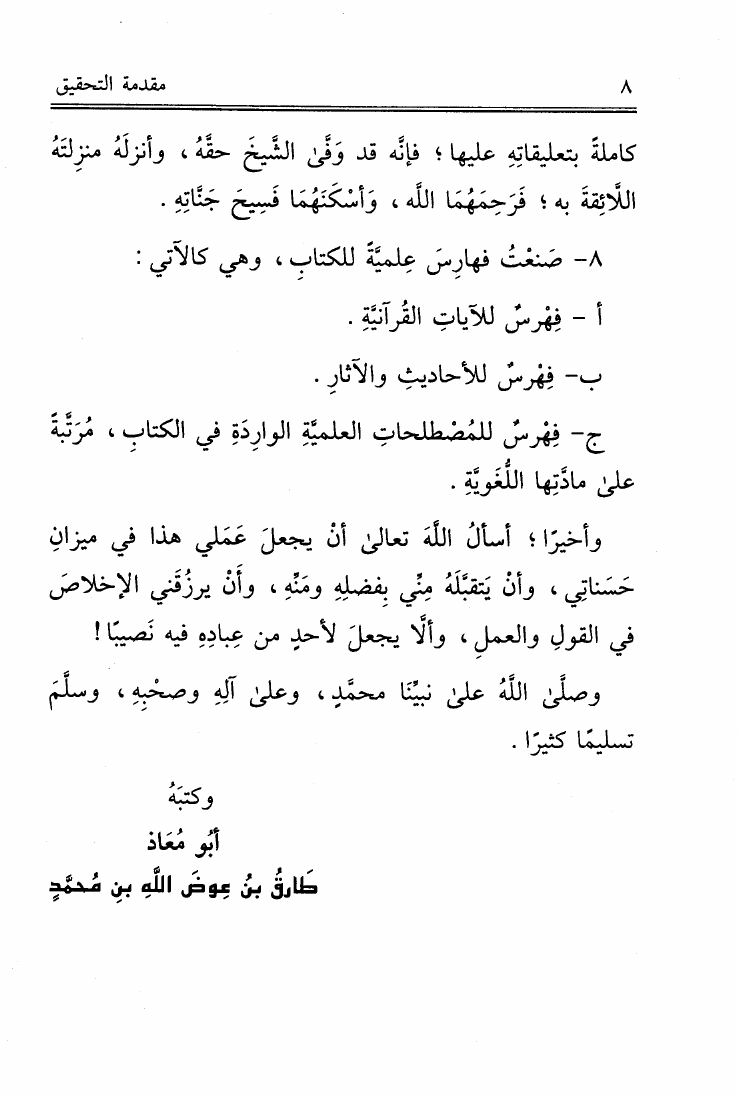 ٨ مقدمة التحقيق
كاملةً بتعليقاتِهِ عليها ؛ فإنَّه قد وَفَّىٰ الشَّيخَ حقَّهُ ، وأنزلَهُ منزِلتَهُ
اللَّائِقةَ به ؛ فَرَحِمَهُمَا اللَّه ، وَأَسْكَنَهُمَا فَسِيحَ جَنَّاتِهِ .
٨- صَنعْتُ فهارِسَ عِلميَّةً للكتابِ ، وهي كالآتي :
أ - فِهْرسٌ للآياتِ القُرآنيَّةِ .
ب- فِهْرسٌ للأحاديثِ والآثارِ .
ج- فِهْرسٌ للمُصْطلحاتِ العلميَّةِ الوارِدَةِ في الكتابِ ، مُرَتَّبةً
علىٰ مادَّتِها اللُّغَويَّةِ .
وأخيرًا ؛ أسألُ اللَّهَ تعالىٰ أنْ يجعلَ عَمَلي هذا في ميزانِ
حَسَناتِي ، وأنْ يَتقبَّلَهُ مِنِّي بِفضلِهِ ومَنِّهِ ، وأَنْ يرزُقَني الإخلاصَ
في القولِ والعملِ ، وألَّا يجعلَ لأحدٍ من عِبادِهِ فيه نَصيبًا !
وصلَّىٰ اللَّهُ علىٰ نبيِّنَا محمَّدٍ ، وعلىٰ آلِهِ وصحْبِهِ ، وسلَّمَ
تسليمًا كثيرًا .
وكتبَهُ
أبُو مُعَاذ
طَارقُ بنُ عِوضَ اللَّهِ بنِ مُحمَّدٍ